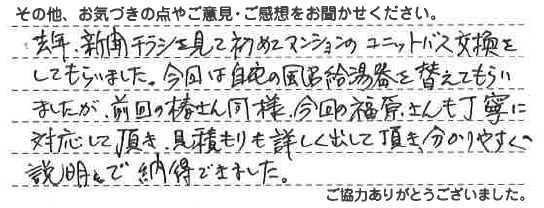 その他、お気づきの点やご意見・ご感想をお聞かせください。
去年、新聞チラシを見て初めてマンションのユニットバス交換を
してもらいました。今回は自宅の風呂給湯器を替えてもらい
ましたが、前回の椿さん同様、今回の福原さんも丁寧に
対応して頂き、見積もりも詳しく出して頂き、分かりやすい
説明で納得できました。
ご協力ありがとうございました。